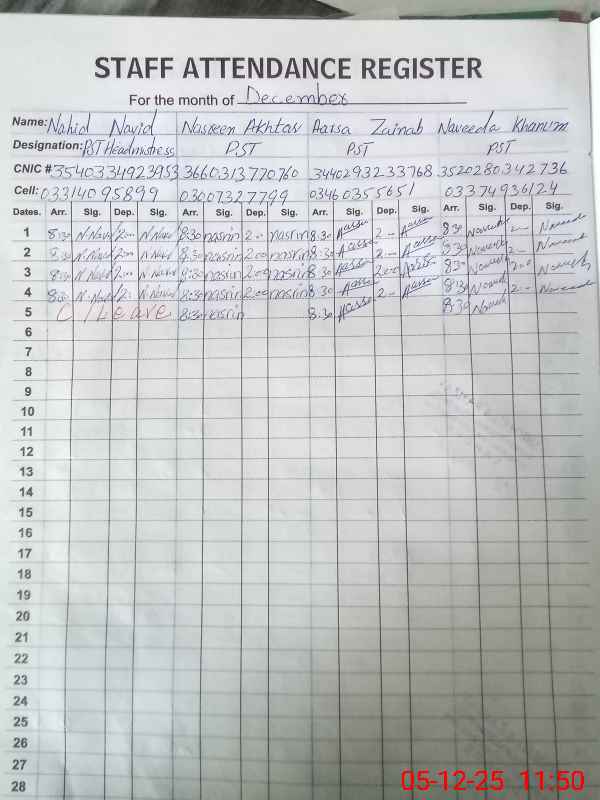 STAFF ATTENDANCE REGISTER
For the month of December
Name: Nahid Navid Nasreen Akhtar Aarsa Zainab Naveeda Khanum
Designation: PST Headmistress PST PST PST
CNIC # 3540334923953 3660313770760 3440293233768 3520280342736
Cell: 03314095899 03007327799 03460355651 03374936124
Dates. Arr. Sig. Dep. Sig. Arr. Sig. Dep. Sig. Arr. Sig. Dep. Sig. Arr. Sig. Dep. Sig.
1 8:30 N.Navid 2:00 N Navid 8:30 nasrin 2:00 nasrin 8.30 Aarsa 2-- Aarsa 8:30 Naveeda 2-- Naveeda
2 8:30 N.Navid 2:00 N Navid 8:30 nasrin 2:00 nasrin 8.30 Aarsa 2-- Aarsa 8:30 Naveeda 2-- Naveeda
3 8:30 N.Navid 2:00 N Navid 8:30 nasrin 2:00 nasrin 8.30 Aarsa 2:00 Aarsa 8:30 Naveeda 2:00 Naveeda
4 8:30 N.Navid 2: N.Navid 8:30 nasrin 2:00 nasrin 8.30 Aarsa 2-- Aarsa 8:30 Naveeda 2-- Naveeda
5 C/Leave 8:30 nasrin 8.30 Aarsa 8:30
6
7
8
9
10
11
12
13
14
15
16
17
18
19
20
21
22
23
24
25
26
27
28
05-12-25 11:50